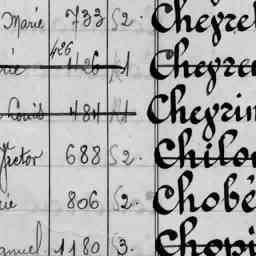 Marie 733 S2. Cheyre
426
rie 1126 A1 Cheyre
Louis 484 A1 Cheyrin
Hector 688 S2. Chilo
rie 806 S2. Chobé
anuel 1180 S3. Chopi